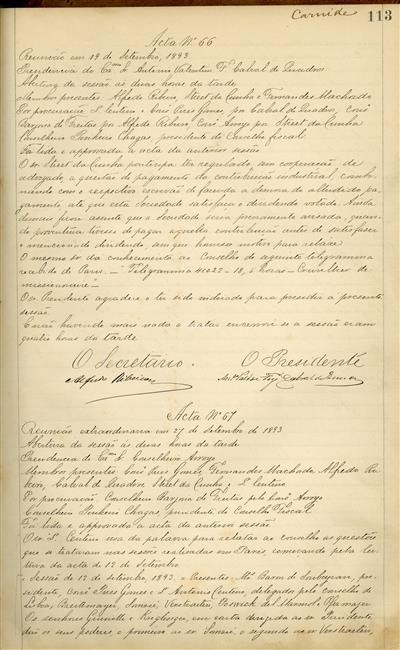 Carnide
113
Acta Nº 66
Reunião em 19 de Setembro, 1893
Presidencia do Exmo Sr. Antonio Valentim F. Cabral de Quadros
Abertura da sessão ás duas horas da tarde
Membros presentes Alfredo Ribeiro, Street da Cunha e Fernandes Machado
Por procuração S. Centeno e José Pires Gomes por Cabral de Quadros, José
de Freitas por Alfredo Ribeiro, José Arroyo por Street da Cunha
Conselheiro Pinheiro Chagas, presidente do Conselho fiscal.
Foi lida e approvada a acta da anterior sessão
O sr. Street da Cunha participa ter regulado, em
advogado, a questão do pagamento da contribuição industrial, combi-
nando com o respectivo escrivão de fazenda a demora do alludido pa-
gamento até que esta Sociedade satisfaça o dividendo votado. Ainda
ficou assente que a Sociedade seria previamente avisada, quan-
do tivesse de pagar aquella contribuição antes de satisfazer
o mencionado dividendo, sem que houvesse motivo para
O mesmo sr. dá conhecimento ao Conselho do seguinte telegramma
recebido de Paris. — Telegramma 41022 - 18, 6 horas —
O sr. Presidente agradece o ter sido indicado para presidir á presente
sessão.
E não havendo mais nada a tratar encerrou-se a sessão eram
quatro horas da tarde
O Secretario. O Presidente
Alfredo Ribeiro
Acta Nº 67
Reunião extraordinaria em 27 de Setembro de 1893
Abertura da sessão ás duas horas da tarde
Presidencia do Exmo Sr. Conselheiro Arroyo
Membros presentes José Pires Gomes, Fernandes Machado, Alfredo Ri-
beiro, Cabral de Quadros, Street da Cunha e S. Centeno
Por procuração Conselheiro de Freitas pelo José Arroyo
Conselheiro Pinheiro Chagas, presidente do Conselho Fiscal
Foi lida e approvada a acta da anterior sessão
O sr. S. Centeno usa da palavra para relatar ao conselho as questões
que se trataram nas sessões realisadas em Paris, começando pela lei-
tura da acta de 12 de Setembro
Sessão de 12 de Setembro, 1893. Presentes Mrs Baron de Soubeyran, pre-
sidente, José Pires Gomes e S. Antonio Centeno, delegados pelo conselho de
Lisboa,
Os senhores e em carta dirigida ao sr. Presidente
dão os seus poderes o primeiro ao sr. o segundo ao sr.